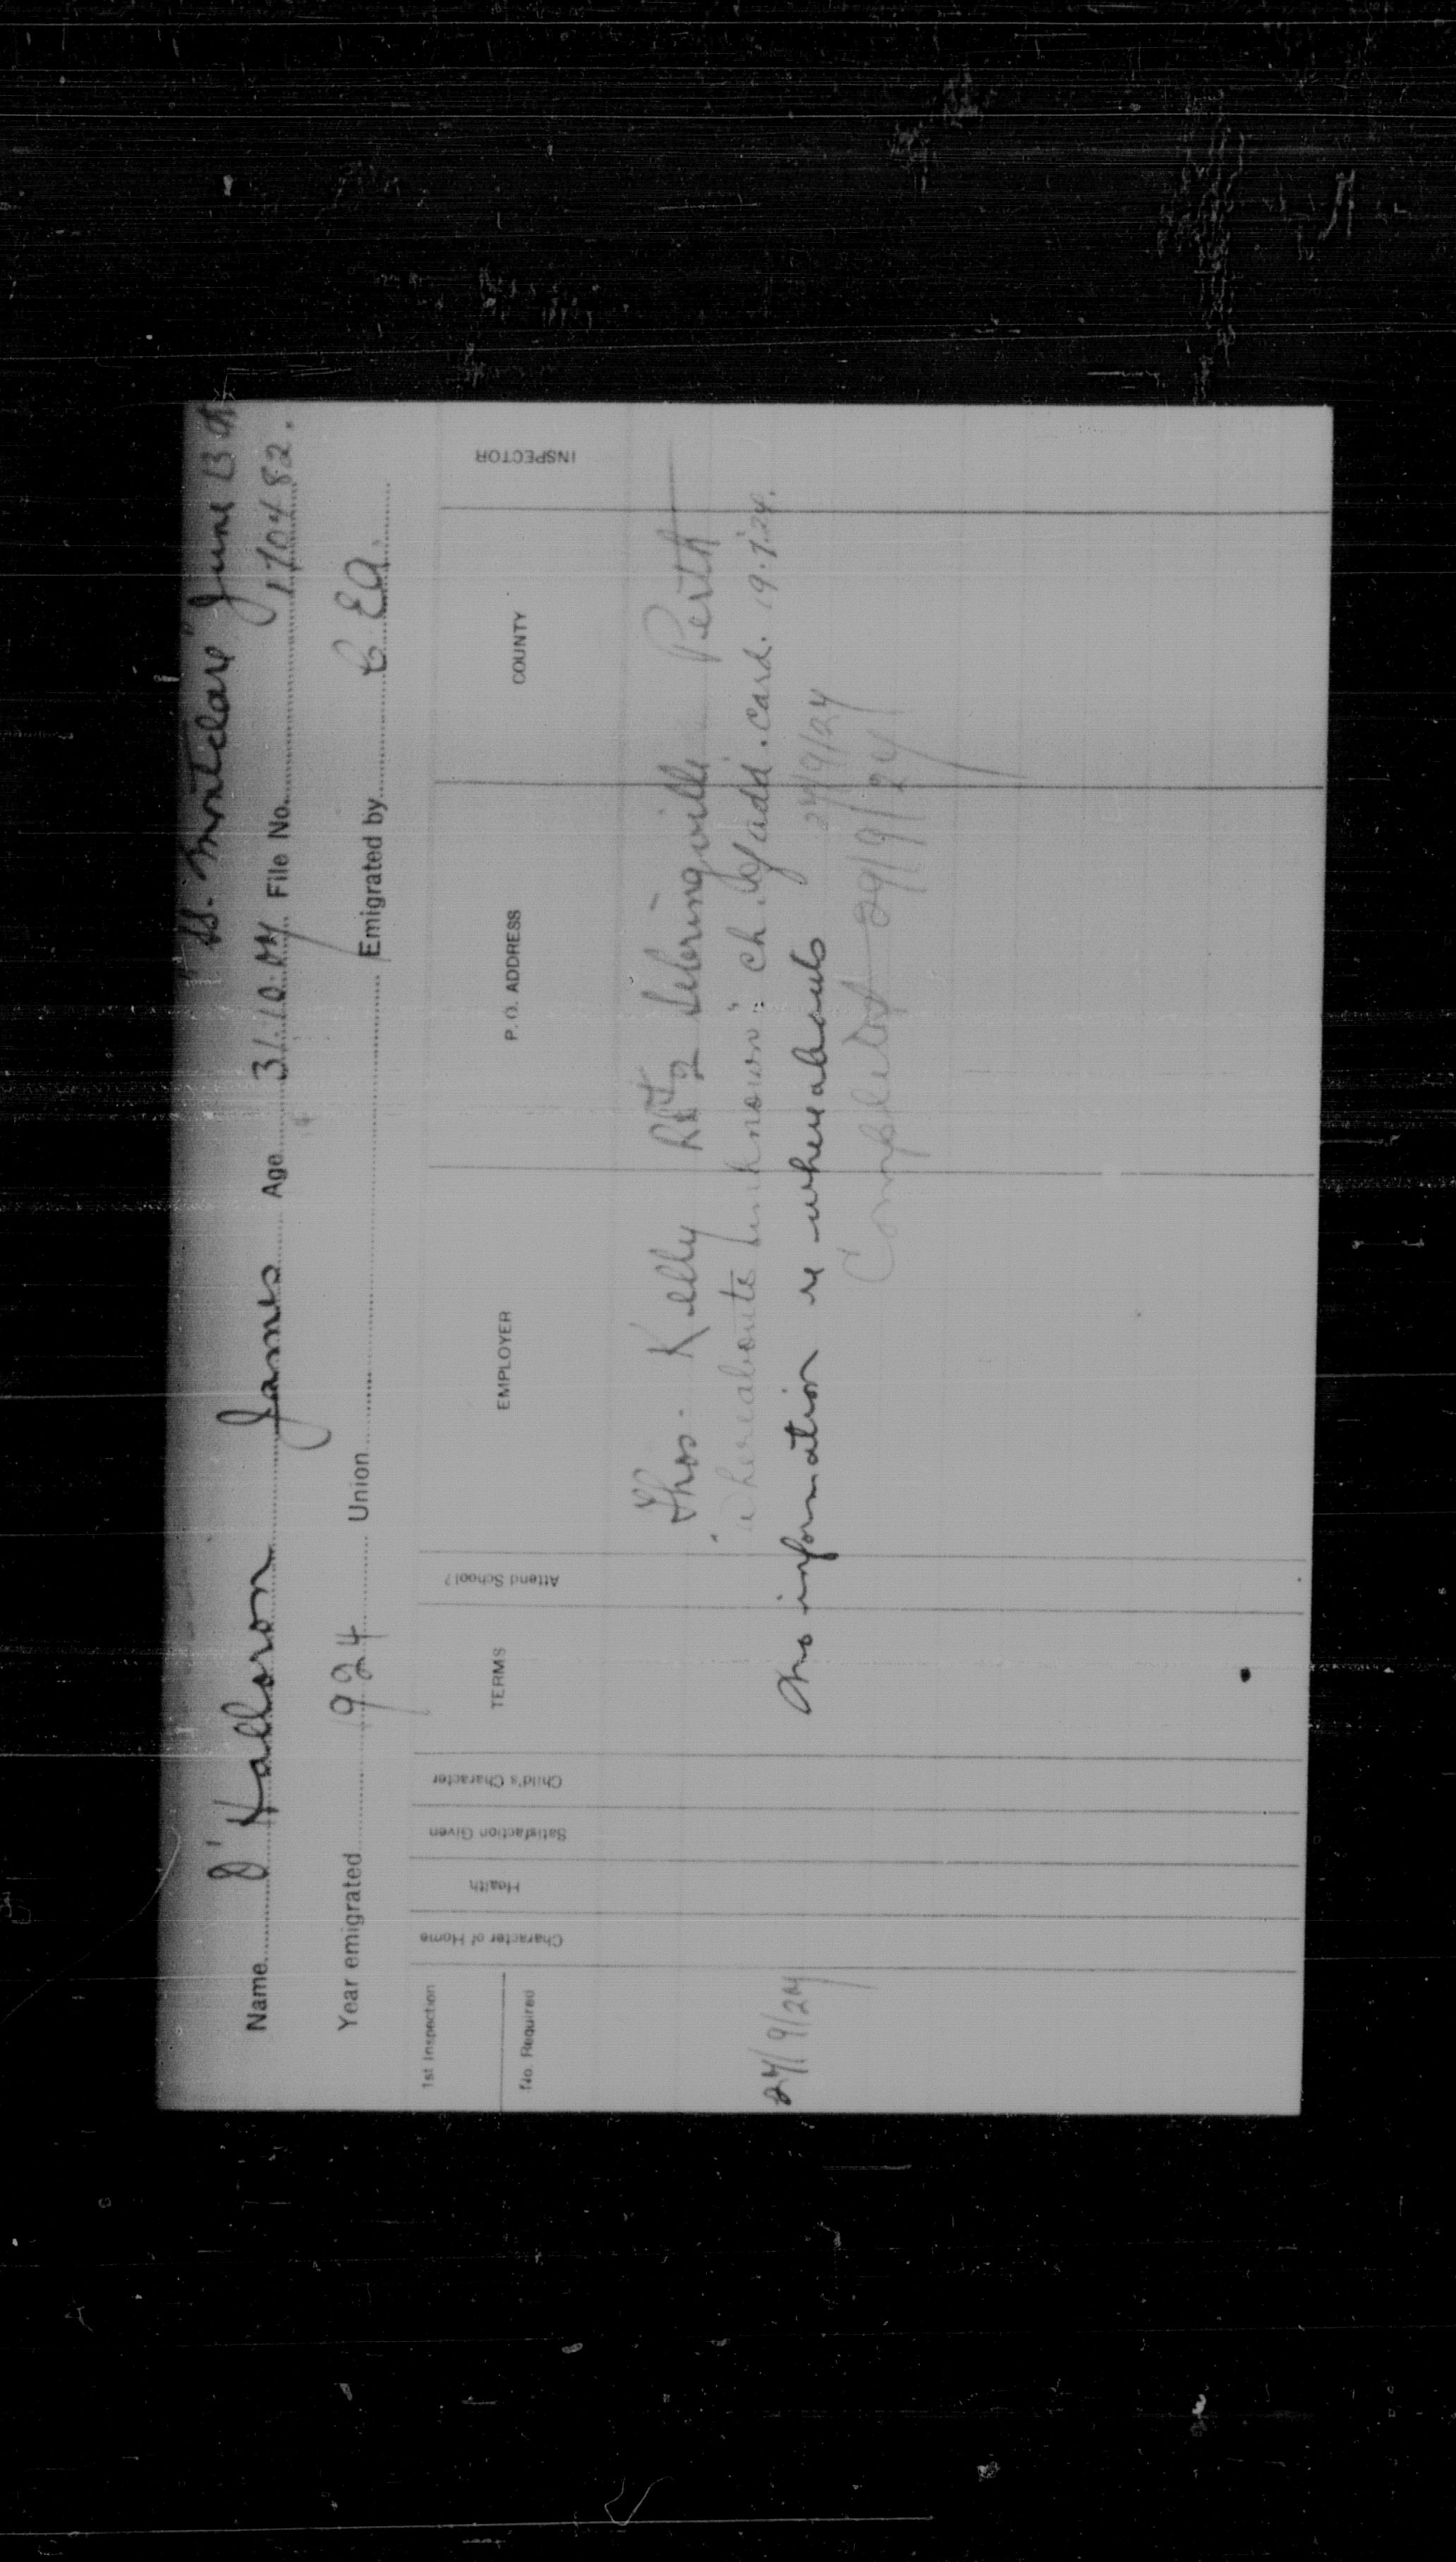 "SS. Montclare" June 13
Name O'Halloron James Age File No. 170482.
Year emigrated 1924 Union Emigrated by C. E. A.
1st Inspection
No. Required
Character of Home
Health
Satisfaction Given
Child's Character
TERMS
Attend School?
EMPLOYER
P. O. ADDRESS
COUNTY
INSPECTOR
Thos. Kelly RR 2 Sebringville Perth
"whereabouts unknown" ch. of add. card. 19.7.24.
24/9/24 No information re whereabouts 24/9/24
Completed 29/9/24